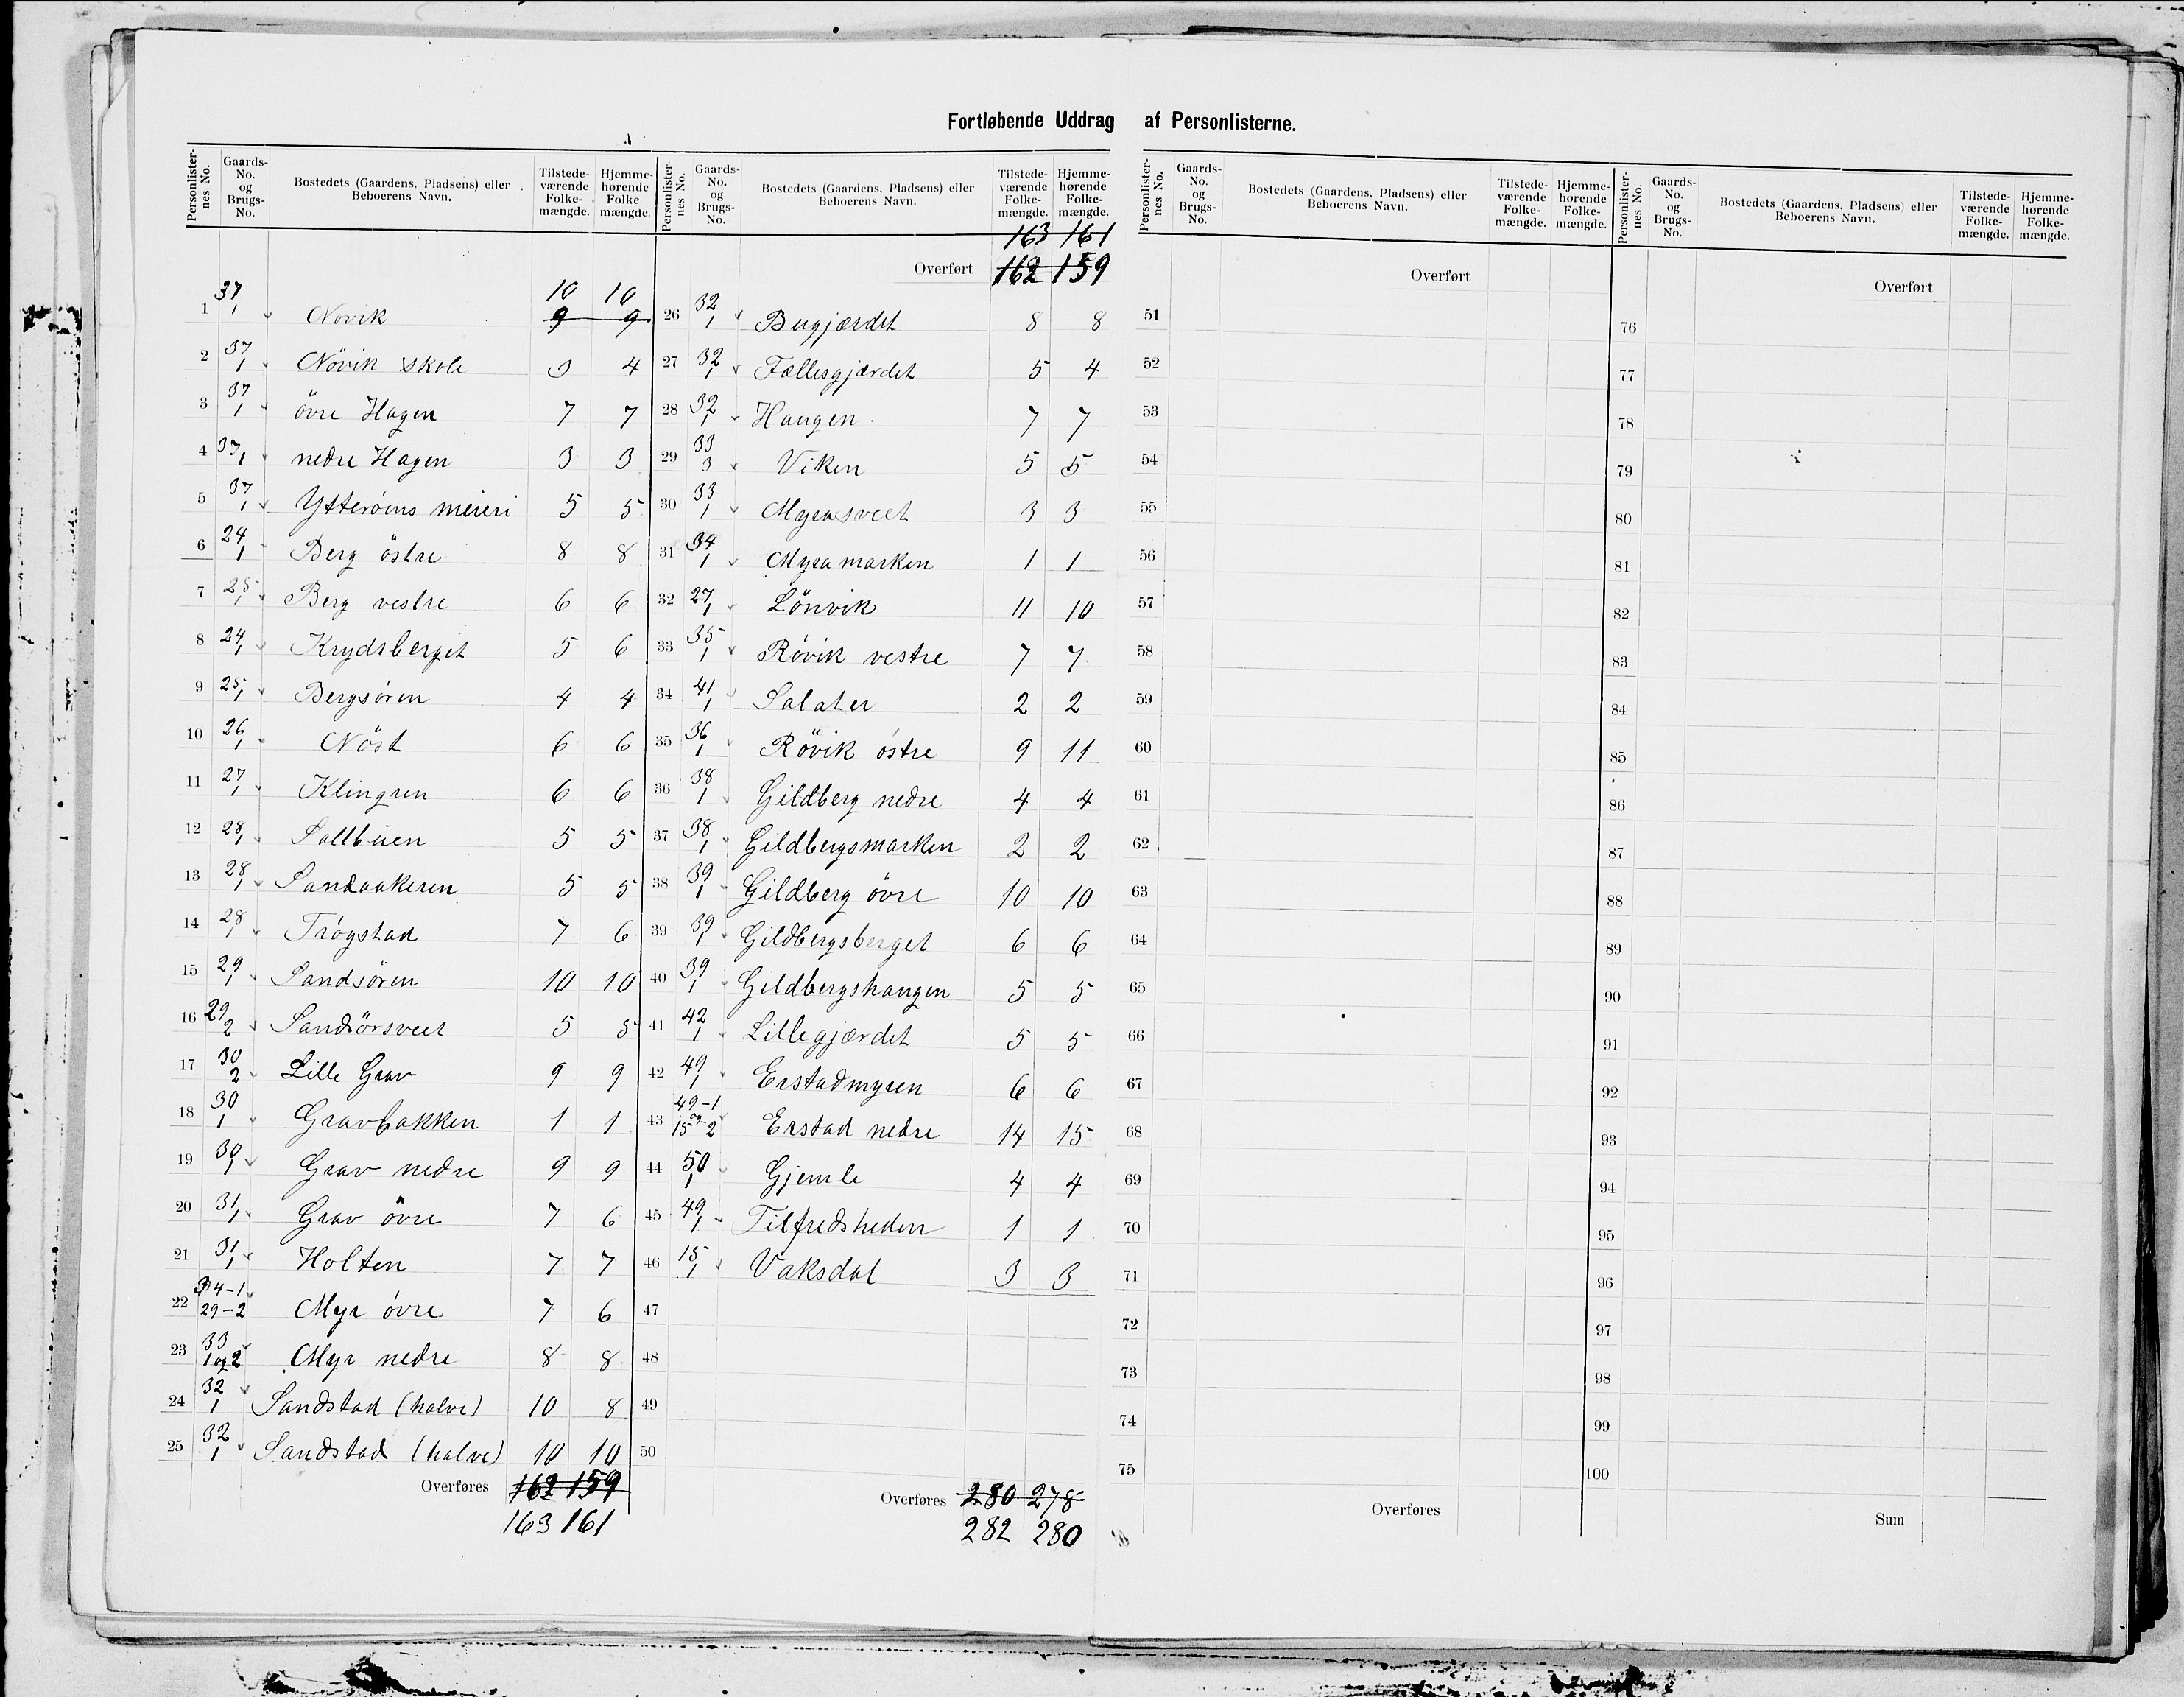 Fortløbende Uddrag af Personlisterne.
Personlister-nes No. Gaards-No. og Brugs-No. Bostedets (Gaardens, Pladsens) eller Beboerens Navn. Tilstede-værende Folke-mængde. Hjemme-hørende Folke mængde.
1 37/1 Növik 9 9 10 10
2 37/1 Növik skole 3 4
3 37/1 övre Hagen 7 7
4 37/1 nedre Hagen 3 3
5 37/1 Ytteröens meieri 5 5
6 24/1 Berg östre 8 8
7 25/1 Berg vestre 6 6
8 24/1 Krydsberget 5 6
9 25/1 Bergsören 4 4
10 26/1 Nöst 6 6
11 27/1 Klingren 6 6
12 28/1 Saltbuen 5 5
13 28/1 Sandaakeren 5 5
14 28/1 Trögstad 7 6
15 29/1 Sandsören 10 10
16 29/2 Sandsörsveet 5 5
17 30/2 Lille Grav 9 9
18 30/1 Gravbakken 1 1
19 30/1 Grav nedre 9 9
20 31/1 Grav övre 7 6
21 31/1 Holten 7 7
22 34-1 29-2 Myr övre 7 6
23 33 1 og 2 Myr nedre 8 8
24 32/1 Sandstad (halve) 10 8
25 32/1 Sandstad (halve) 10 10
Overføres 162 159
163 161
Personlister-nes No. Gaards-No. og Brugs-No. Bostedets (Gaardens, Pladsens) eller Beboerens Navn. Tilstede-værende Folke-mængde. Hjemme-hørende Folke-mængde.
163 161
Overført 162 159
26 32/1 Bugjærdet 8 8
27 32/1 Fællesgjærdet 5 4
28 32/1 Haugen 7 7
29 33/3 Viken 5 5
30 33/1 Myrasveet 3 3
31 34/1 Myramarken 1 1
32 27/1 Lönvik 11 10
33 35/1 Rövik vestre 7 7
34 41/1 Salater 2 2
35 36/1 Rövik östre 9 11
36 38/1 Gildberg nedre 4 4
37 38/1 Gildbergsmarken 2 2
38 39/1 Gildberg övre 10 10
39 39/1 Gildbergsberget 6 6
40 39/1 Gildbergshaugen 5 5
41 42/1 Lillegjærdet 5 5
42 49/1 Erstadmyren 6 6
43 49-1 og 15-2 Erstad nedre 14 15
44 50/1 Gjemle 4 4
45 49/1 Tilfredsheden 1 1
46 15/1 Vaksdal 3 3
47
48
49
50
Overføres 280 278
282 280
Personlister-nes No. Gaards-No. og Brugs-No. Bostedets (Gaardens, Pladsens) eller Beboerens Navn. Tilstede-værende Folke-mængde. Hjemme-hørende Folke-mængde.
Overført
51
52
53
54
55
56
57
58
59
60
61
62
63
64
65
66
67
68
69
70
71
72
73
74
75
Overføres
Personlister-nes No. Gaards-No. og Brugs-No. Bostedets (Gaardens, Pladsens) eller Beboerens Navn. Tilstede-værende Folke-mængde. Hjemme-hørende Folke-mængde.
Overført
76
77
78
79
80
81
82
83
84
85
86
87
88
89
90
91
92
93
94
95
96
97
98
99
100
Sum